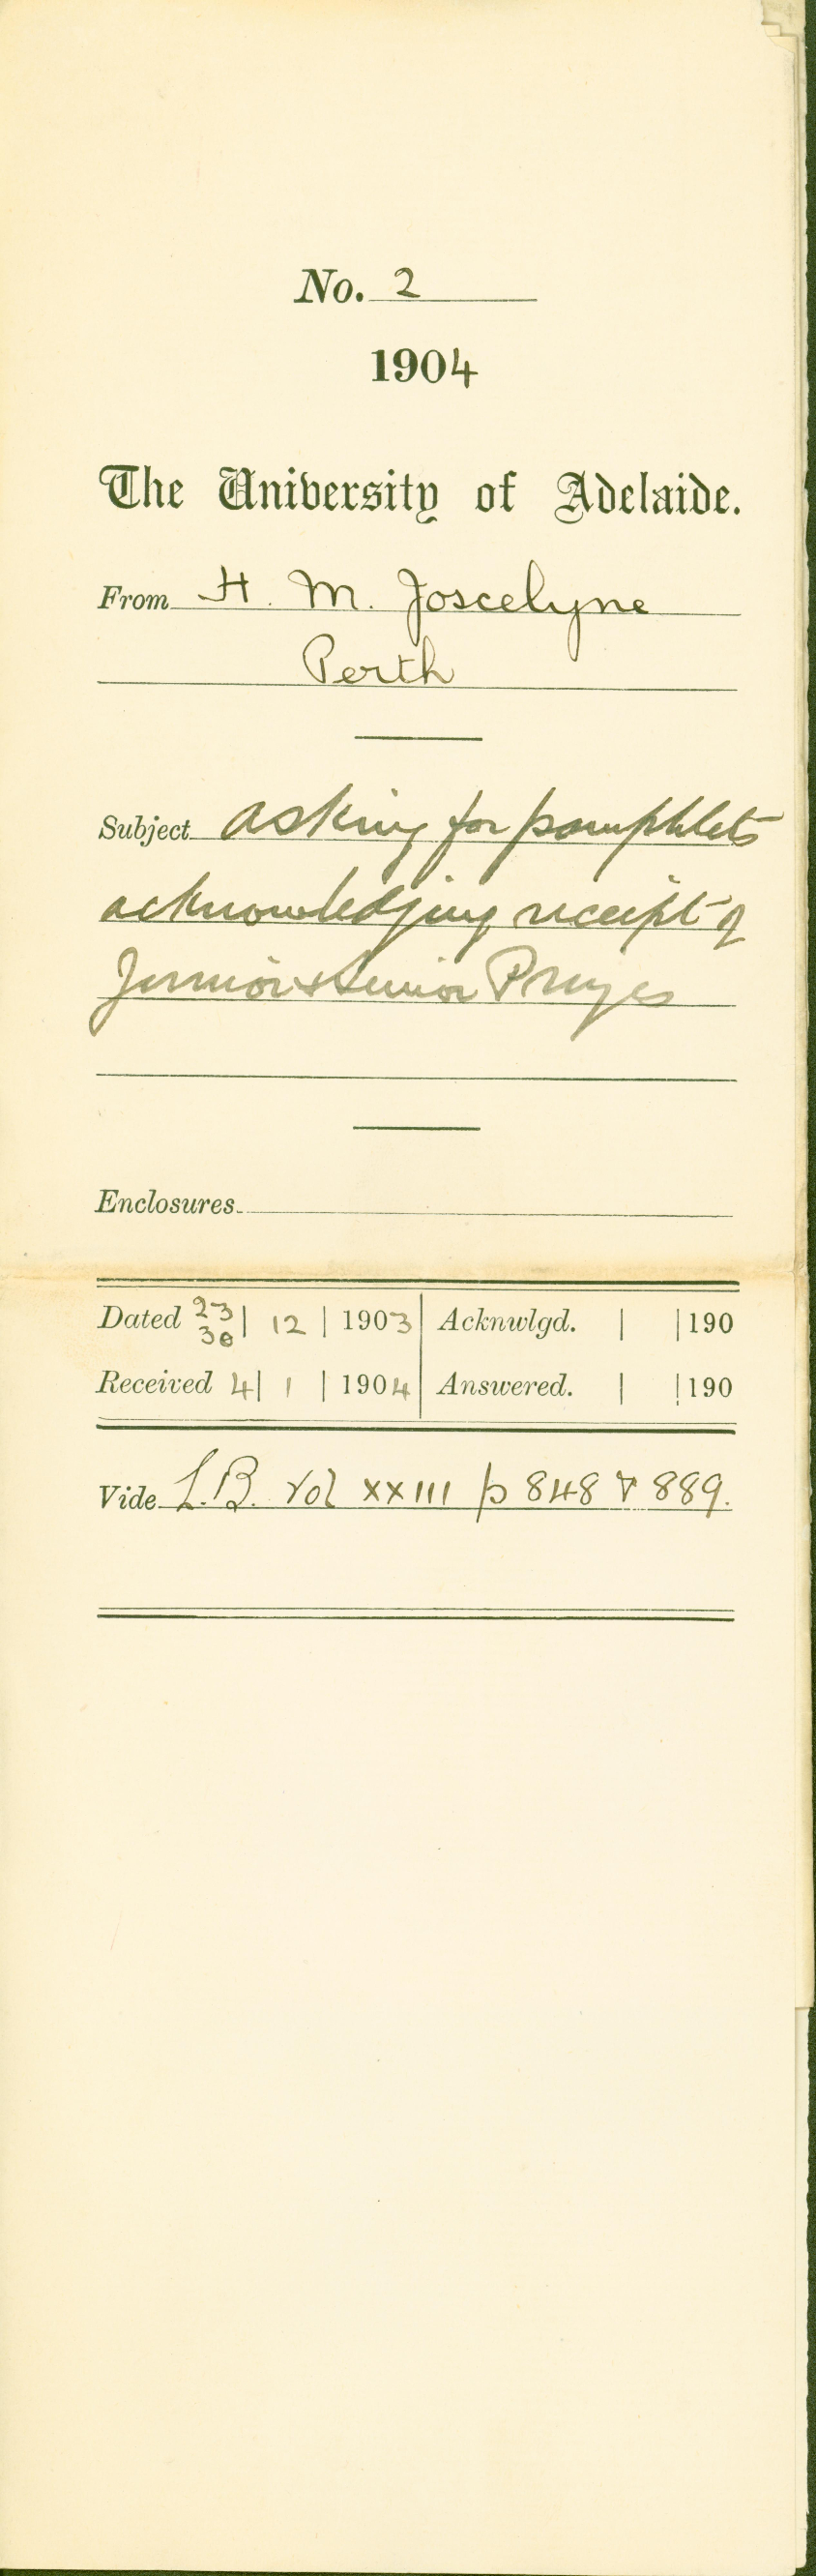 No. 2
1904
The University of Adelaide.
From H. M. Joscelyne
Perth
Subject asking for pamphlets
acknowledging receipt of
Junior & Senior Prizes
Enclosures.
Dated 23 30 | 12 | 1903 | Acknwlgd. | | 190
Received 4 | 1 | 1904 | Answered. | | 190
Vide L.B. Vol XXIII p 848 & 889.